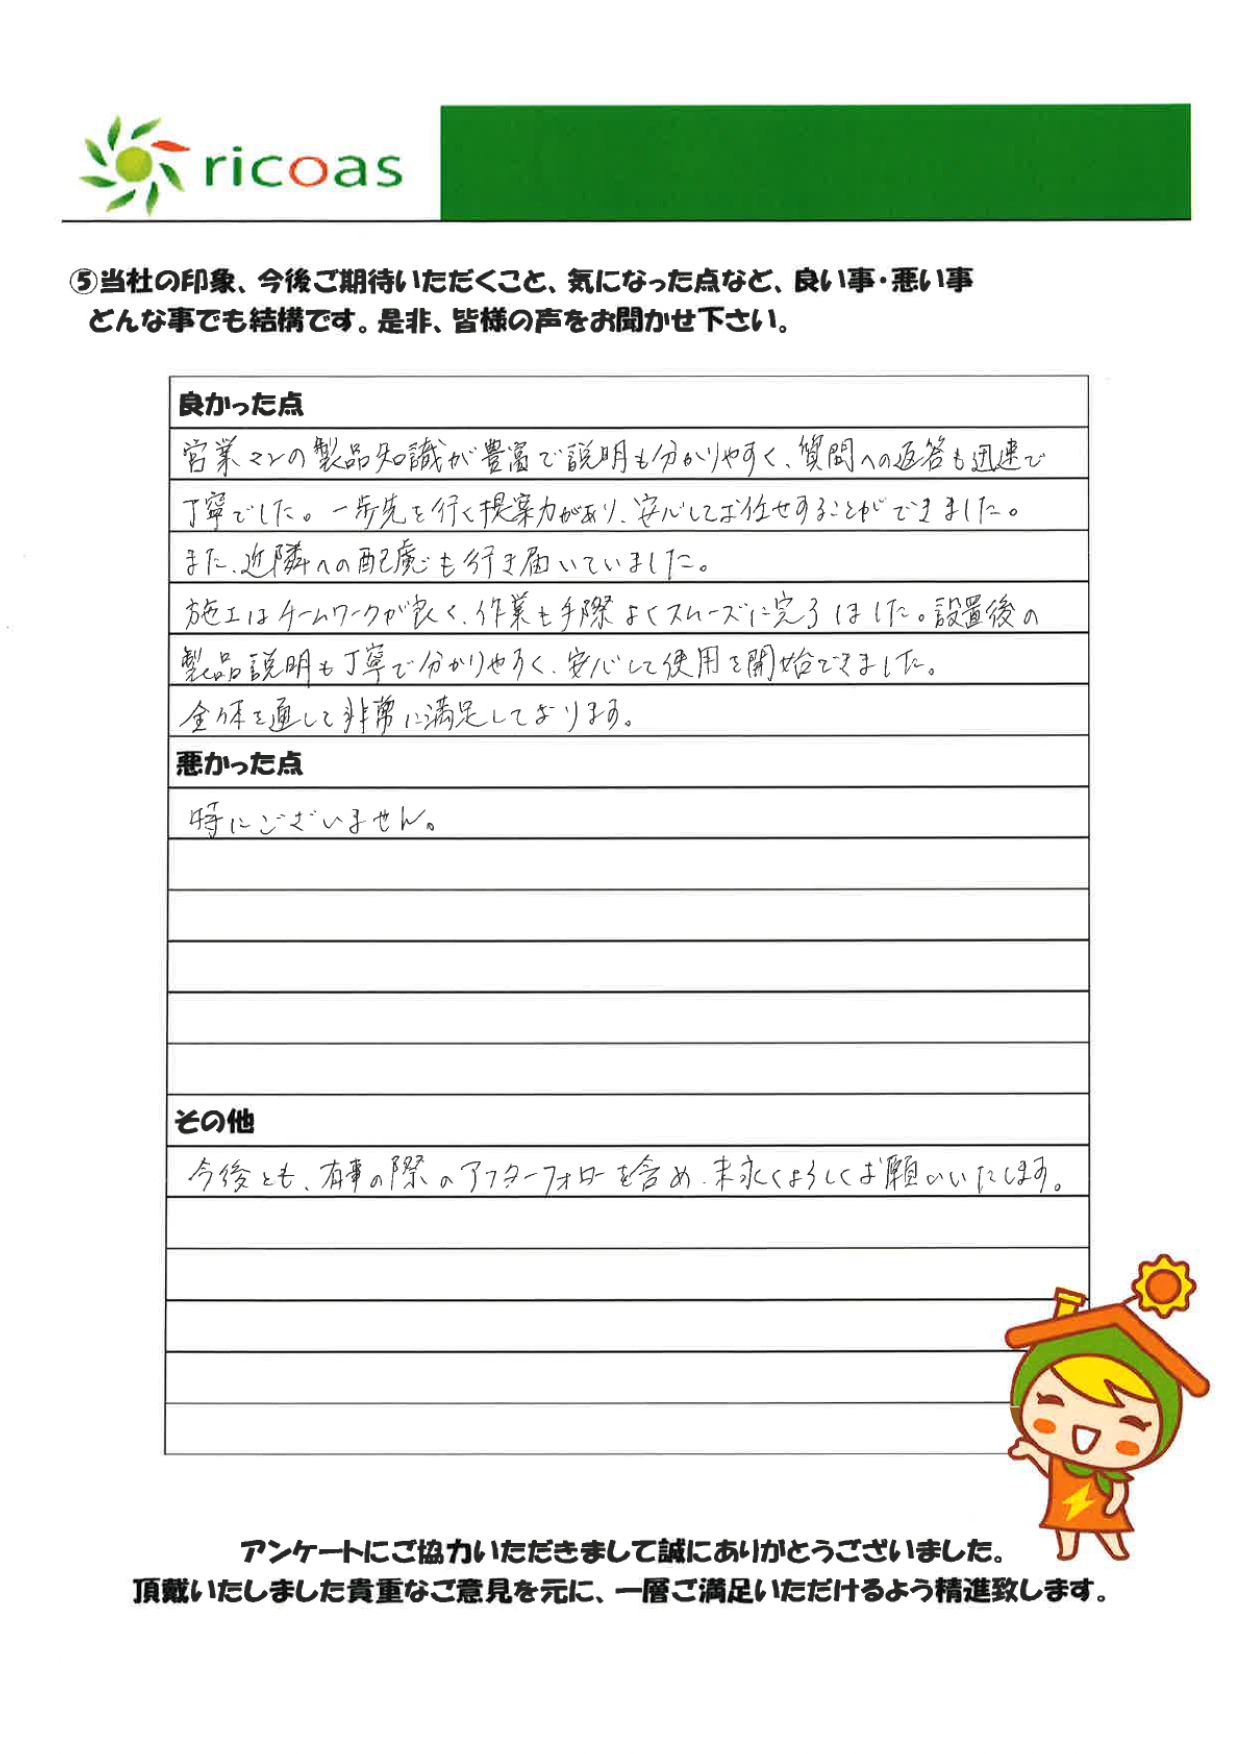 ricoas
⑤当社の印象、今後ご期待いただくこと、気になった点など、良い事・悪い事
どんな事でも結構です。是非、皆様の声をお聞かせ下さい。
良かった点
営業マンの製品知識が豊富で説明も分かりやすく、質問への返答も迅速で
丁寧でした。一歩先を行く提案力があり、安心してお任せすることができました。
また、近隣への配慮も行き届いていました。
施工はチームワークが良く、作業も手際よくスムーズに完了しました。設置後の
製品説明も丁寧で分かりやすく、安心して使用を開始できました。
全体を通して非常に満足しております。
悪かった点
特にございません。
その他
今後とも、有事の際のアフターフォローを含め、末永くよろしくお願いいたします。
アンケートにご協力いただきまして誠にありがとうございました。
頂戴いたしました貴重なご意見を元に、一層ご満足いただけるよう精進致します。